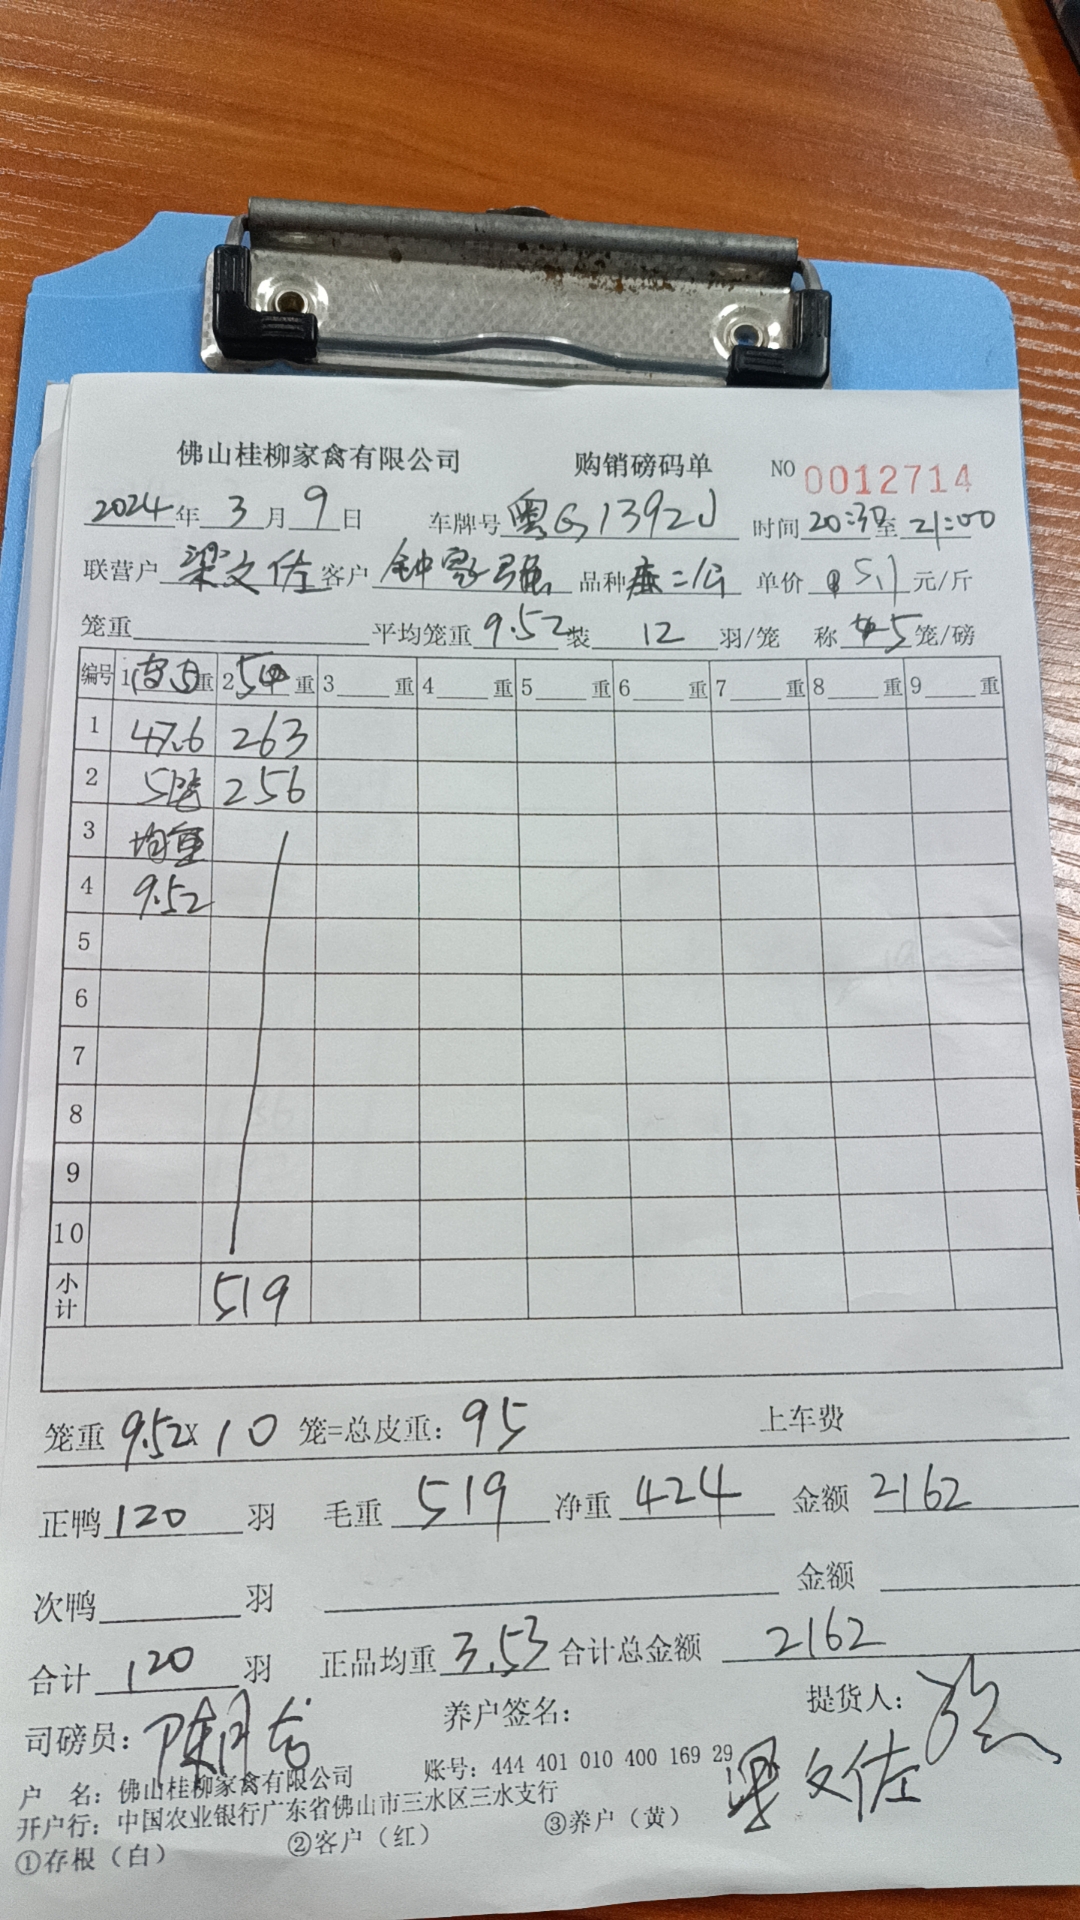 佛山桂柳家禽有限公司 购销磅码单 NO 0012714
2024年3月9日 车牌号粤G1392J 时间20:30至21:00
联营户 梁文佐 客户 钟家强 品种 二公 单价 5.1 元/斤
笼重 平均笼重9.52装 12 羽/笼 称 5笼/磅
编号 1 重 2 重 3 重 4 重 5 重 6 重 7 重 8 重 9 重
1 47.6 263
2 5笼 256
3 均重
4 9.52
5
6
7
8
9
10
小计 519
笼重 9.52×10 笼=总皮重：95 上车费
正鸭120羽 毛重 519 净重 424 金额 2162
次鸭 羽 金额
合计 120 羽 正品均重 3.53 合计总金额 2162
司磅员： 养户签名： 提货人：
梁文佐
户 名：佛山桂柳家禽有限公司 账号：444 401 010 400 169 29
开户行：中国农业银行广东省佛山市三水区三水支行
①存根（白） ②客户（红） ③养户（黄）